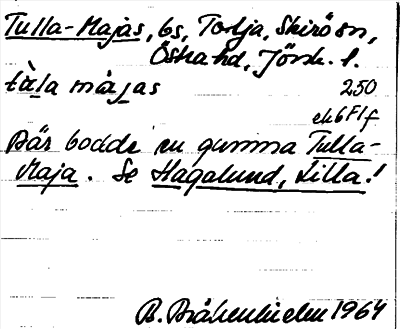 Tulla-Majas, bs, Torlja, Skirö sn,
Östra hd, Jönk. l.
tàla màjas 250
ek6F1f
Där bodde en gumma Tulla-
Maja. Se Hagalund, Lilla!
B. Bråkenhielm 1964